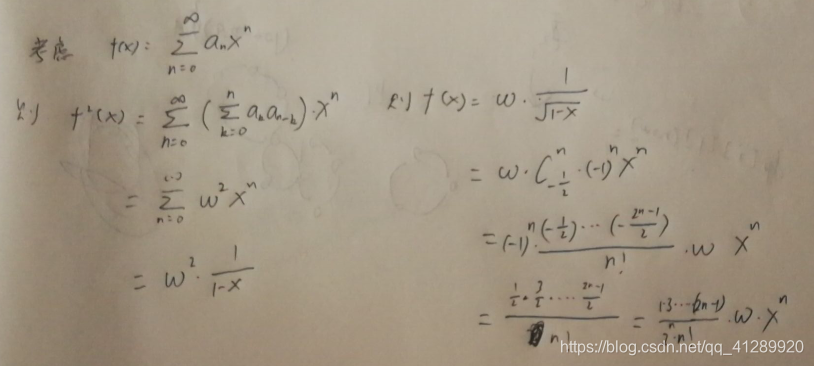 考虑 f(x): \sum_{n=0}^{\infty} a_n x^n
则 f^2(x) = \sum_{n=0}^{\infty} ( \sum_{k=0}^{n} a_k a_{n-k} ) \cdot x^n
= \sum_{n=0}^{\infty} w^2 x^n
= w^2 \cdot \frac{1}{1-x}
则 f(x) = w \cdot \frac{1}{\sqrt{1-x}}
= w \cdot C_{-\frac{1}{2}}^{n} \cdot (-1)^n x^n
= (-1)^n \cdot \frac{(-\frac{1}{2}) \cdots (-\frac{2n-1}{2})}{n!} \cdot w x^n
= \frac{\frac{1}{2} \cdot \frac{3}{2} \cdots \frac{2n-1}{2}}{n!} = \frac{1 \cdot 3 \cdots (2n-1)}{2^n \cdot n!} \cdot w \cdot x^n
https://blog.csdn.net/qq_41289920